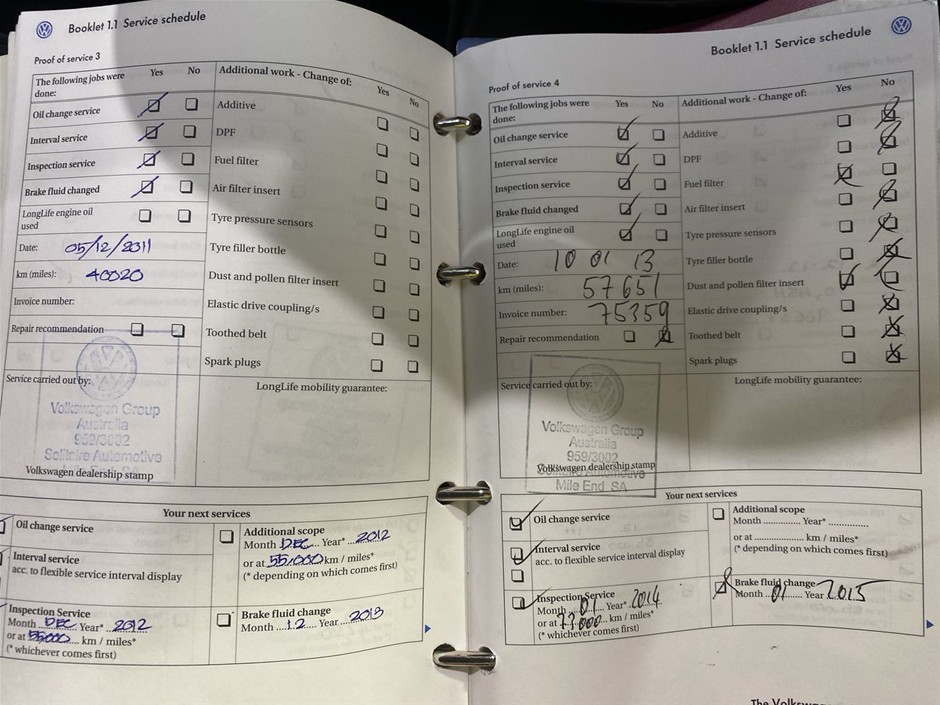 Booklet 1.1 Service schedule
Proof of service 3
The following jobs were done:
Yes No
Additional work - Change of:
Yes No
Oil change service
Interval service
Inspection service
Brake fluid changed
LongLife engine oil
used
Date: 05/12/2011
km (miles): 40020
Invoice number:
Repair recommendation
Additive
DPF
Fuel filter
Air filter insert
Tyre pressure sensors
Tyre filler bottle
Dust and pollen filter insert
Elastic drive coupling/s
Toothed belt
Spark plugs
Service carried out by:
LongLife mobility guarantee:
Volkswagen Group
Australia
959/3002
Solitaire Automotive
Mile End, SA
Volkswagen dealership stamp
Your next services
Oil change service
Interval service
acc. to flexible service interval display
Inspection Service
Month DEC Year* 2012
or at 55000 km / miles*
(* whichever comes first)
Additional scope
Month DEC Year* 2012
or at 55,000 km / miles*
(* depending on which comes first)
Brake fluid change
Month 12 Year 2013
Booklet 1.1 Service schedule
Proof of service 4
The following jobs were
done:
Yes No
Additional work - Change of:
Yes No
Oil change service
Interval service
Inspection service
Brake fluid changed
LongLife engine oil
used
Date: 10 01 13
km (miles): 57651
Invoice number: 75359
Repair recommendation
Additive
DPF
Fuel filter
Air filter insert
Tyre pressure sensors
Tyre filler bottle
Dust and pollen filter insert
Elastic drive coupling/s
Toothed belt
Spark plugs
Service carried out by:
LongLife mobility guarantee:
Volkswagen Group
Australia
959/3002
Solitaire Automotive
Mile End, SA
Volkswagen dealership stamp
Your next services
Oil change service
Interval service
acc. to flexible service interval display
Inspection Service
Month 01 Year* 2014
or at 73000 km / miles*
(* whichever comes first)
Additional scope
Month Year*
or at km / miles*
(* depending on which comes first)
Brake fluid change
Month 01 Year 2015